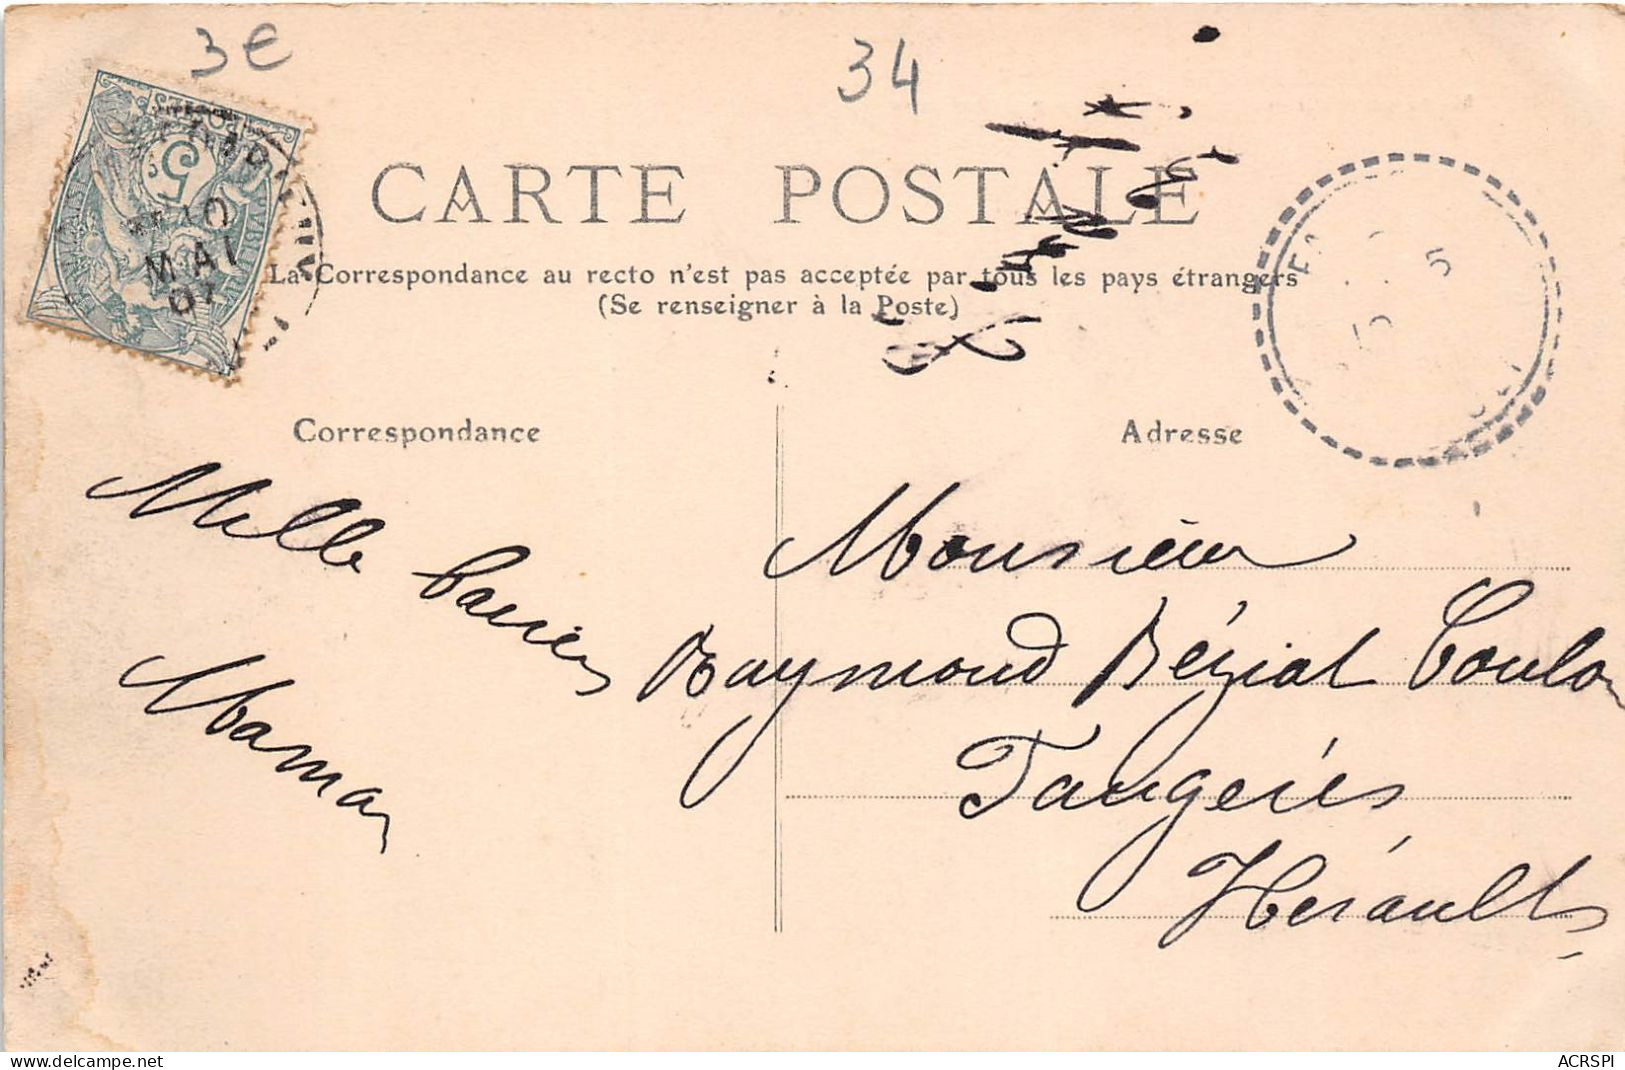 3€
34
5
10
MAI
07
CARTE POSTALE
La Correspondance au recto n'est pas acceptée par tous les pays étrangers
(Se renseigner à la Poste)
5
Correspondance
Adresse
Mille baisers
Maman
Monsieur
Raymond Bézial Coulon
Faugères
Hérault
www.delcampe.net
ACRSPI